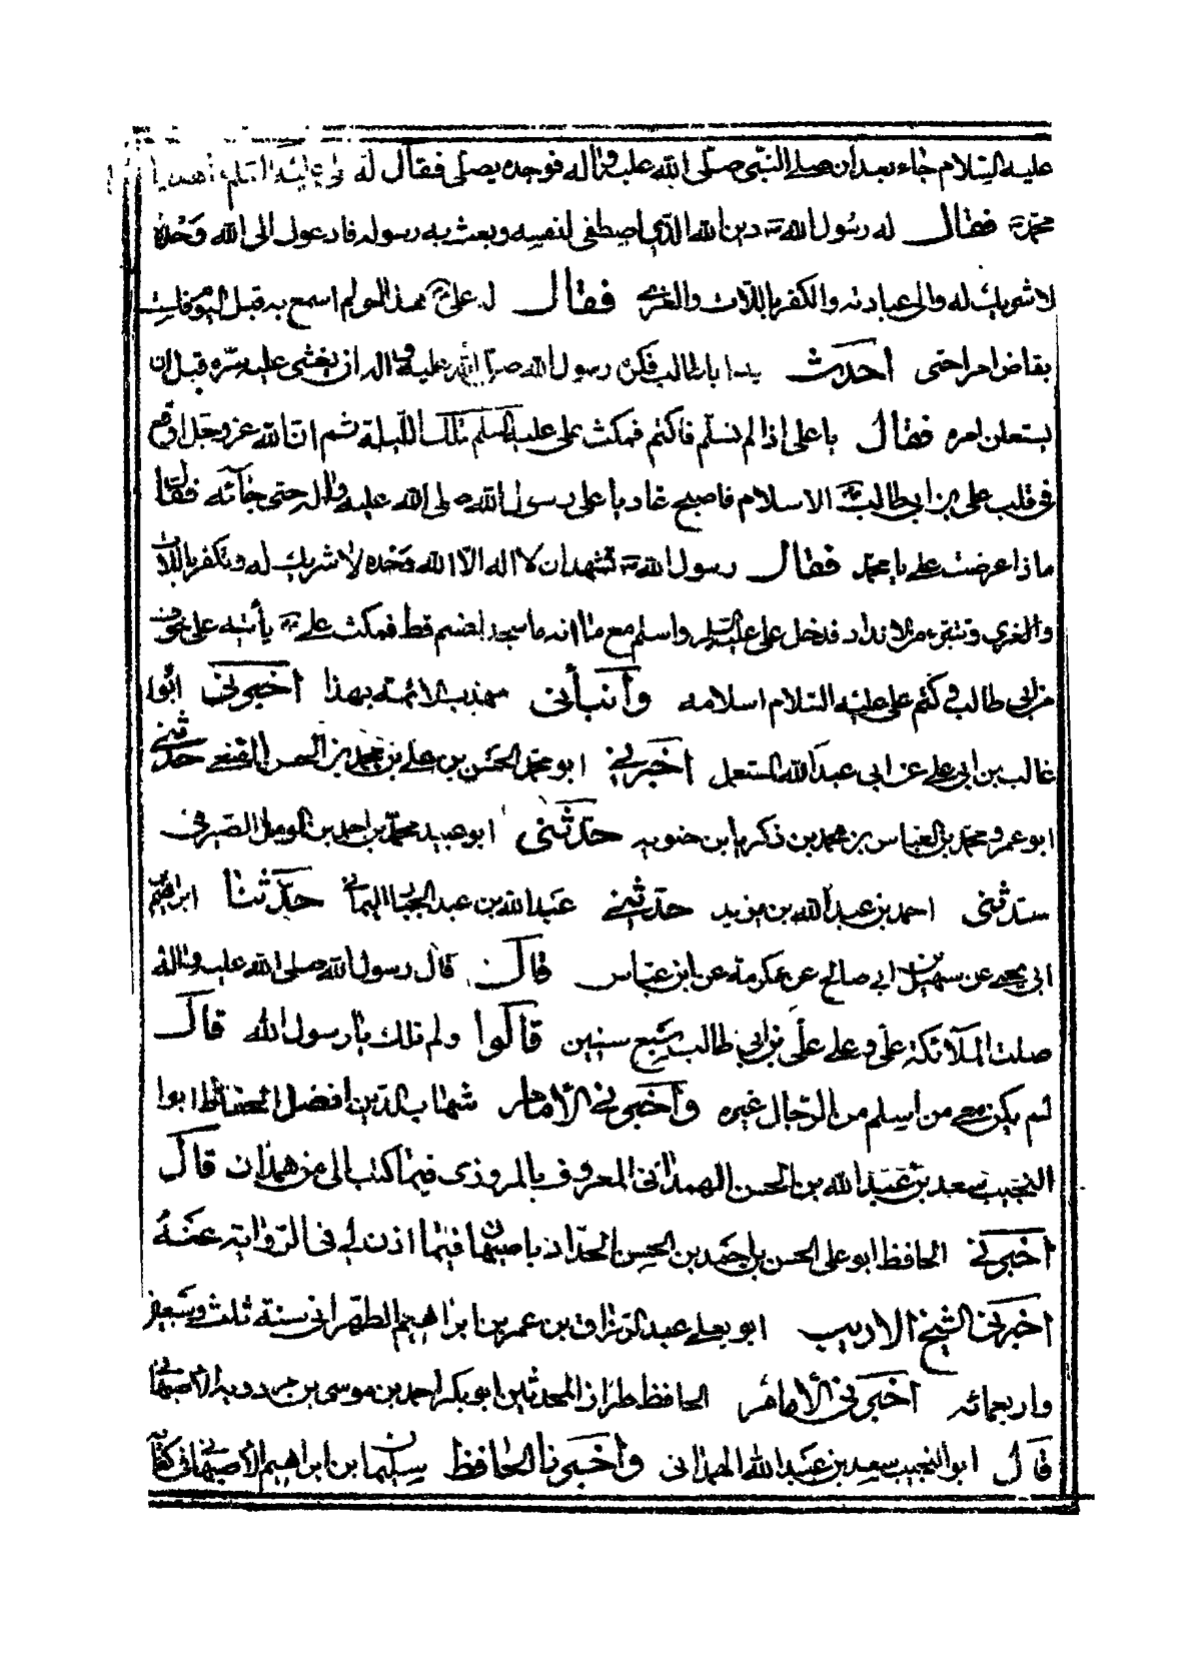 عليه السلام جاء بعد ان صلى النبى صلى الله عليه واله فوجده يصلى فقال له
محمد فقال له رسول الله دين الله الذى اصطفى لنفسه وبعث به رسوله فادعوك الى الله وحده
لا شريك له والى عبادته والكفر باللات والعزى فقال له على هذا امر لم اسمع به قبل اليوم فلست
بقاض امرا حتى احدث به ابا طالب فكره رسول الله صلى الله عليه واله ان يفشى عليه سره قبل ان
يستعلن امره فقال يا على اذا لم تسلم فاكتم فمكث على عليه السلم تلك الليلة ثم ان الله عز وجل اوقع
فى قلب على بن ابى طالب الاسلام فاصبح غاديا على رسول الله صلى الله عليه واله حتى جائه فقال
ماذا عرضت على يا محمد فقال رسول الله تشهد ان لا اله الا الله وحده لا شريك له وتكفر باللات
والعزى وتتبرء من الانداد فدخل على عليه السلم واسلم مع ما انه ما سجد لصنم قط فمكث على يأتيه على خوف
من ابى طالب وكتم على عليه السلام اسلامه وأنبأنى مهذب الائمة بهذا اخبرنى ابو
غالب بن ابى على عن ابى عبد الله المستعمل اخبرنى ابو محمد الحسن بن على بن محمد بن الحسن المقنعى حدثنى
ابو عمرو محمد بن العباس بن محمد بن زكريا بن حنويه حدثنى ابو عبيد محمد بن احمد بن المومل الصيرفى
ستدثنى احمد بن عبد الله بن يزيد حدثنى عبد الله بن عبد الجبار اليمانى حدثنا ابراهيم
ابى يحيى عن سهيل بن ابى صالح عن عكرمة عن ابن عباس قال قال رسول الله صلى الله عليه واله
صلت الملآئكة على وعلى على بن ابى طالب سبع سنين قالوا ولم ذلك يا رسول الله قال
لم يكن معى من اسلم من الرجال غيره وأخبرنى الامام شهاب الدين افضل الحفاظ ابوا
النجيب سعد بن عبد الله بن الحسن الهمدانى المعروف بالمروزى فيما كتب الى من همدان قال
اخبرنى الحافظ ابو على الحسن بن احمد بن الحسن الحداد باصبهان فيما اذن لى فى الرواية عنه
اخبرنى الشيخ الاديب ابو يعلى عبد الرزاق بن عمر بن ابراهيم الطهرانى سنة ثلث وسبعين
واربعمائه اخبرنى الامام الحافظ طراز المحدثين ابو بكر احمد بن موسى بن مردويه الاصبهانى
قال ابو النجيب سعد بن عبد الله الهمدانى وأخبرنا الحافظ سليمان بن ابراهيم الاصبهانى كتابه